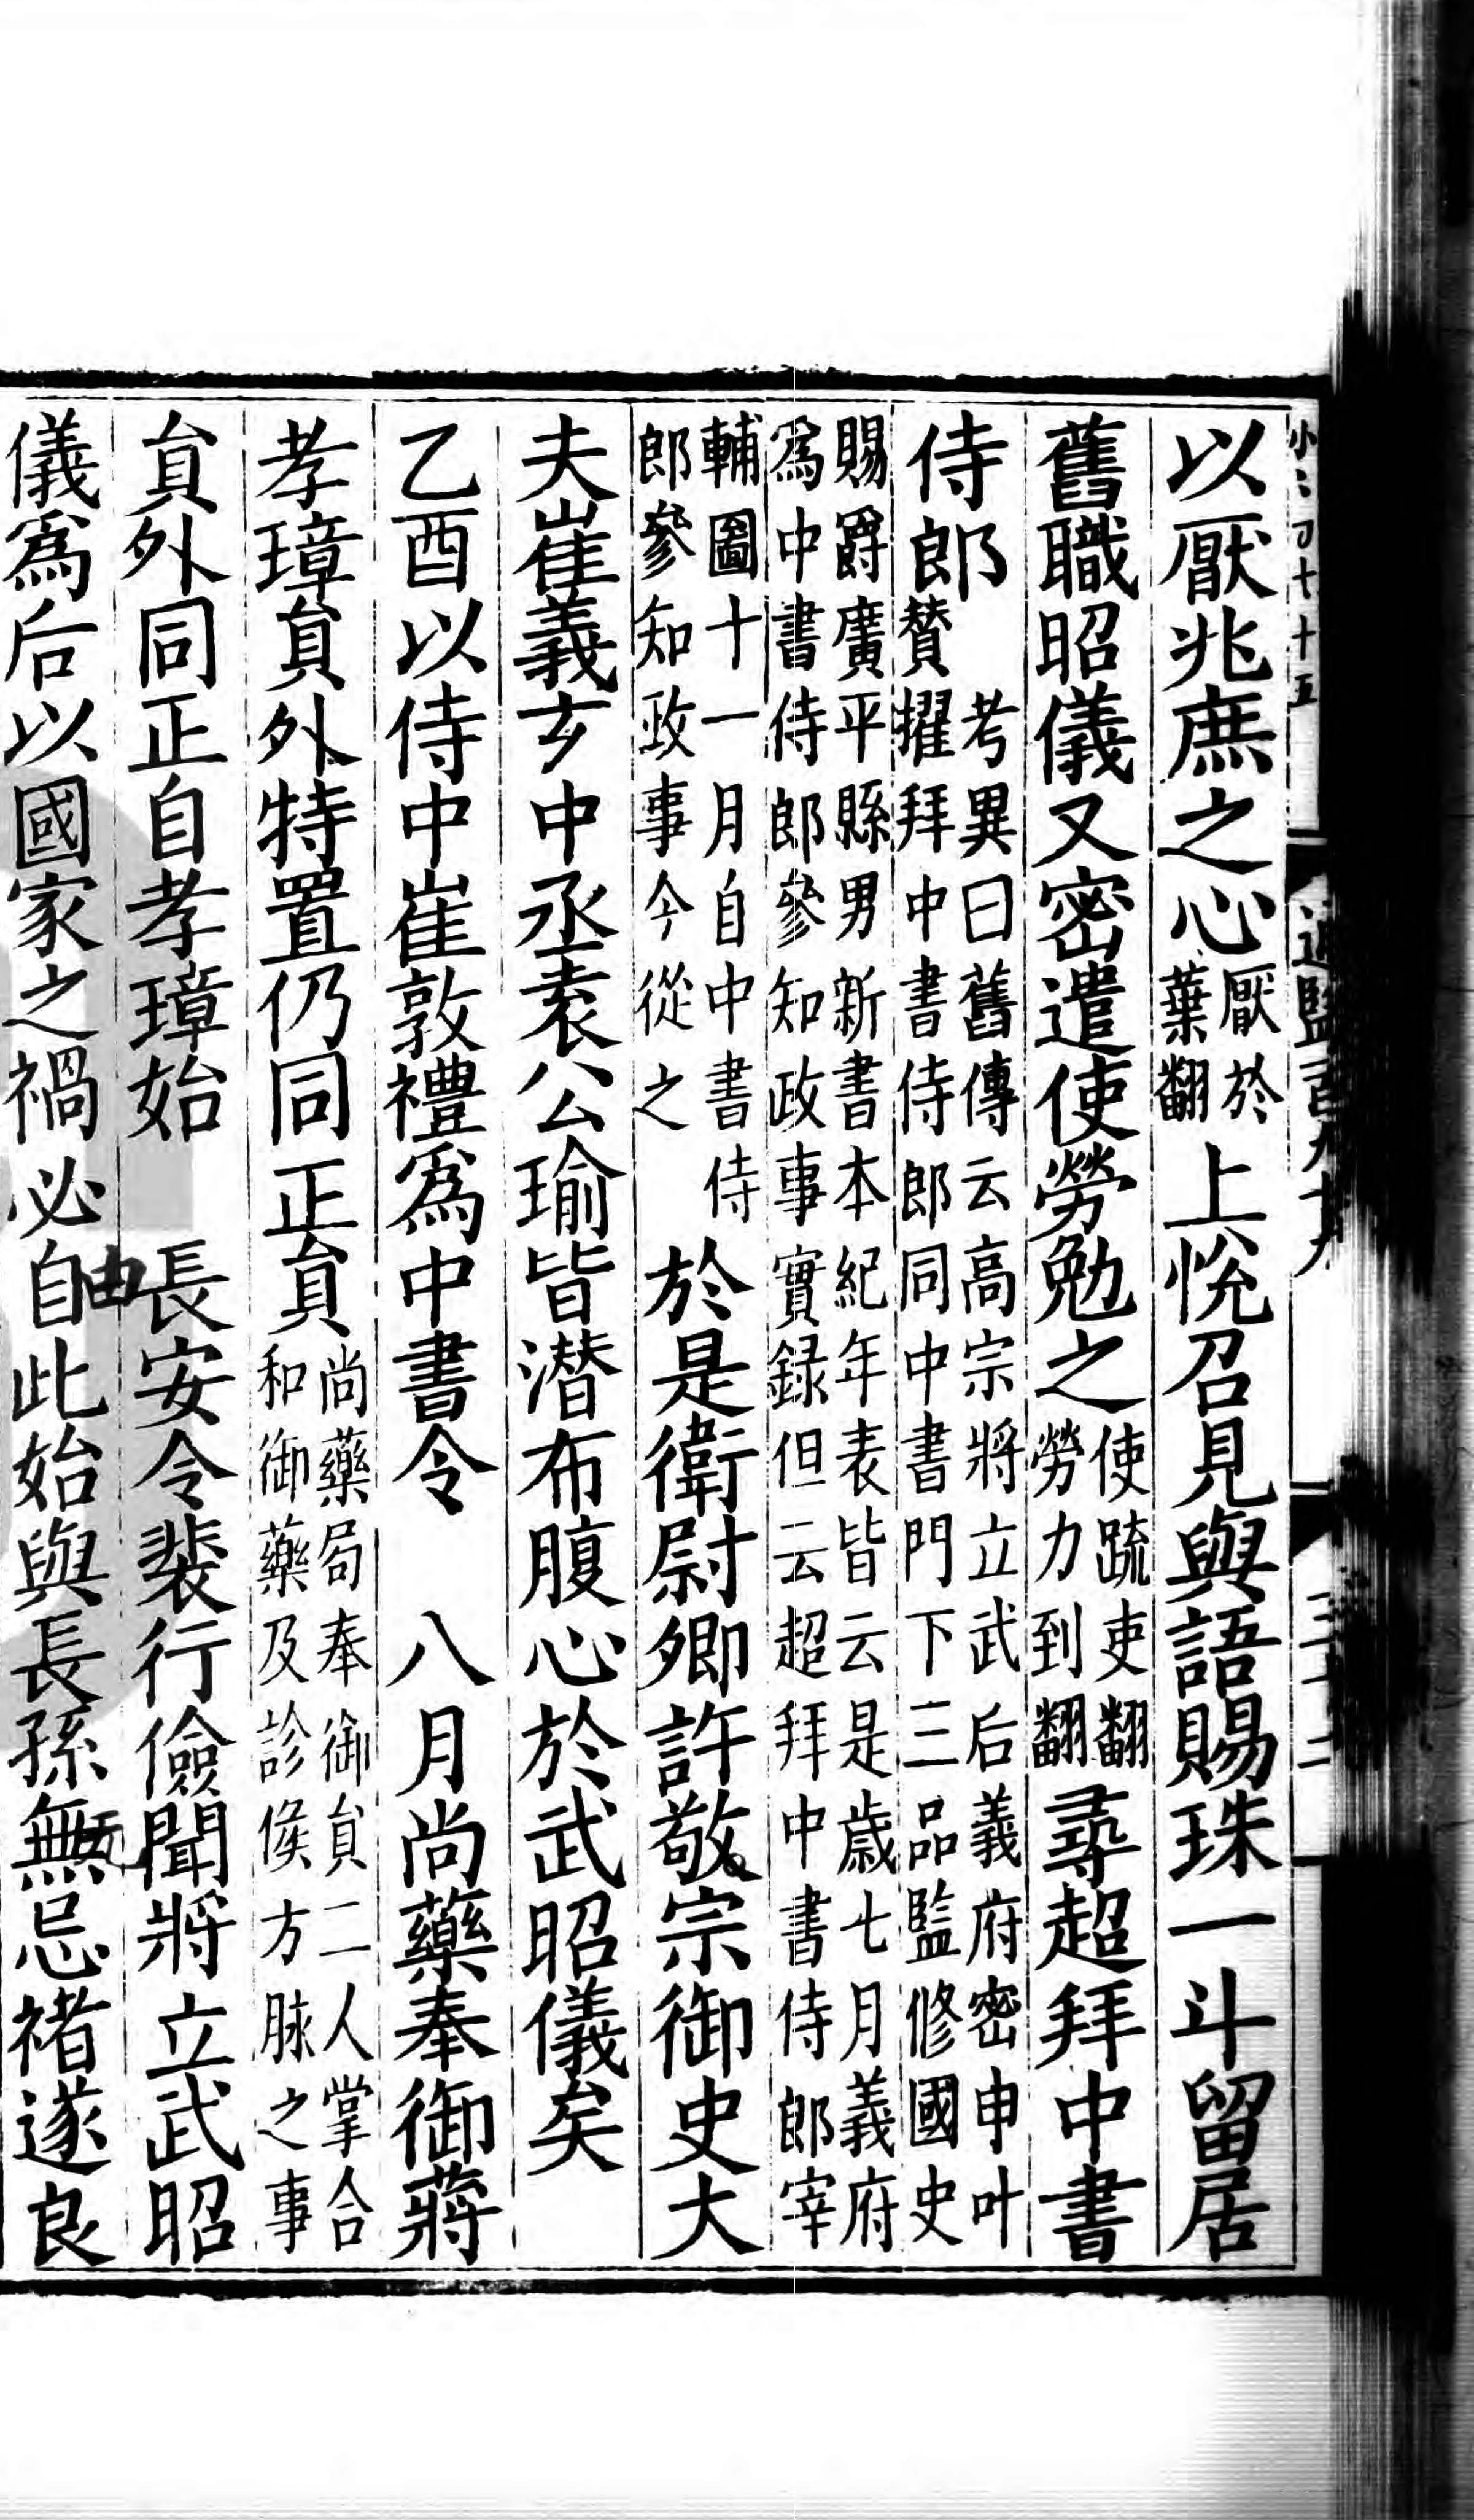 以厭兆庶之心厭於葉翻上悅召見與語賜珠一斗留居
舊職昭儀又密遣使勞勉之使疏吏翻勞力到翻尋超拜中書
侍郎考異曰舊傳云高宗將立武后義府密申叶賛擢拜中書侍郎同中書門下三品監修國史
賜爵廣平縣男新書本紀年表皆云是歲七月義府爲中書侍郎參知政事實録但云超拜中書侍郎宰
輔圖十一月自中書侍郎參知政事今從之於是衛尉卿許敬宗御史大
夫崔義玄中丞袁公瑜皆潜布腹心於武昭儀矣
乙酉以侍中崔敦禮爲中書令　八月尚藥奉御蔣
孝璋貟外特置仍同正貟尚藥局奉御貟二人掌合和御藥及診候方脉之事
貟外同正自孝璋始　長安令裴行儉聞將立武昭
儀爲后以國家之禍必自此始與長孫無忌褚遂良